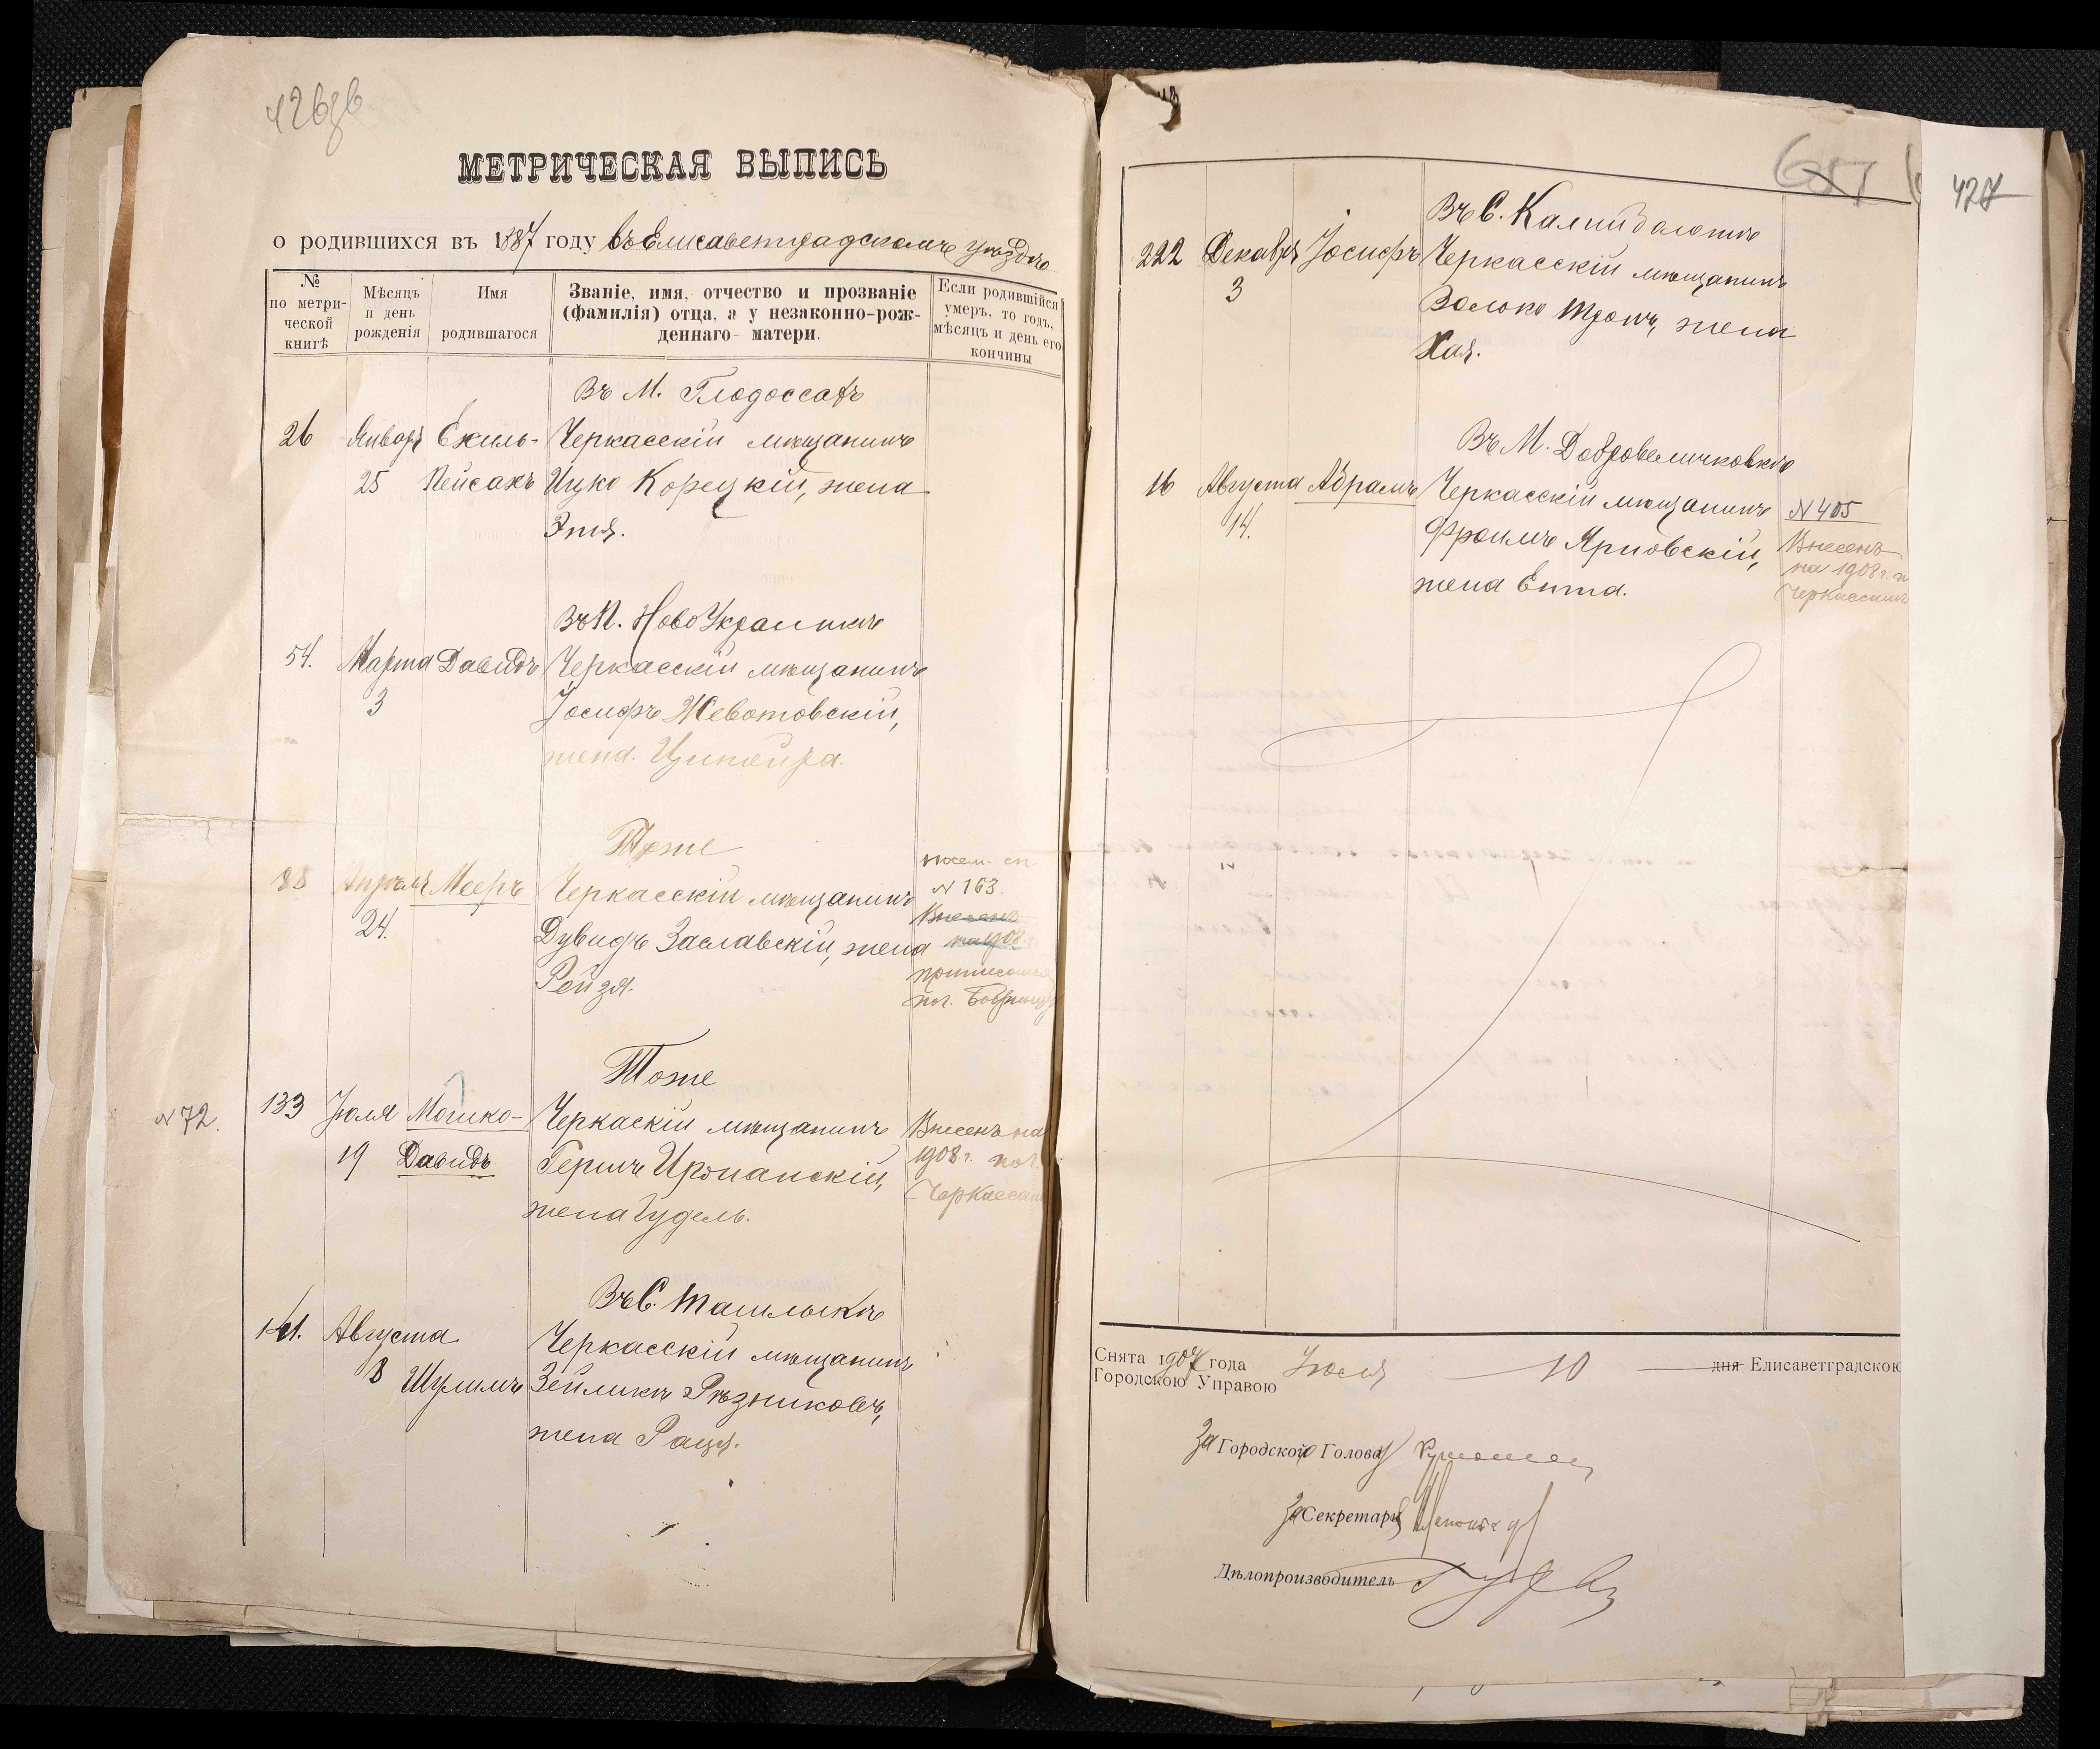 МЕТРИЧЕСКАЯ ВЫПИСЬ
о родившихся въ 1887 году въ Елисаветградскомъ уѣздѣ
№ по метрической книгѣ
Мѣсяцъ и день рожденія
Имя родившагося
Званіе, имя, отчество и прозваніе (фамилія) отца, а у незаконно-рожденнаго- матери.
Если родившійся умеръ, то годъ, мѣсяцъ и день его кончины
Въ М. Глодоссахъ
26 Января Ехиль- Черкасскій мѣщанинъ
25 Пейсахъ Ицко Корецкій, жена
Этя.
Въ П. НовоУкраинкѣ
54. Марта Давидъ Черкасскій мѣщанинъ
3 Іосифъ Животовскій,
жена Ципойра.
Тоже
88 Апрѣля Мееръ Черкасскій мѣщанинъ N 163.
24. Дувидъ Заславскій, жена
Рейзя.
Внесенъ
на 1908
Тоже
N 72. 133 Іюля Мошко- Черкаскій мѣщанинъ Внесенъ на
19 Давидъ Гершъ 1908 г. по г.
жена Гудель. Черкассам
Въ С. Ташлыкѣ
141. Августа Черкасскій мѣщанинъ
8 Шулимъ Зейликъ Рѣзниковъ,
жена Рация.
427
Въ С.
222 Декабря Іосифъ Черкасскій мѣщанинъ
3 Волько
жена
Хая.
Въ М. Добровеличковкѣ
16 Августа Абрамъ Черкасскій мѣщанинъ N 405
14. Фроимъ Ярновскій, Внесенъ
жена Ента. на 1908 г. п
Черкассамъ
Снята 1907 года Іюля 10 дня Елисаветградскою
Городскою Управою
За Городского Голову
За Секретаря
Дѣлопроизводитель